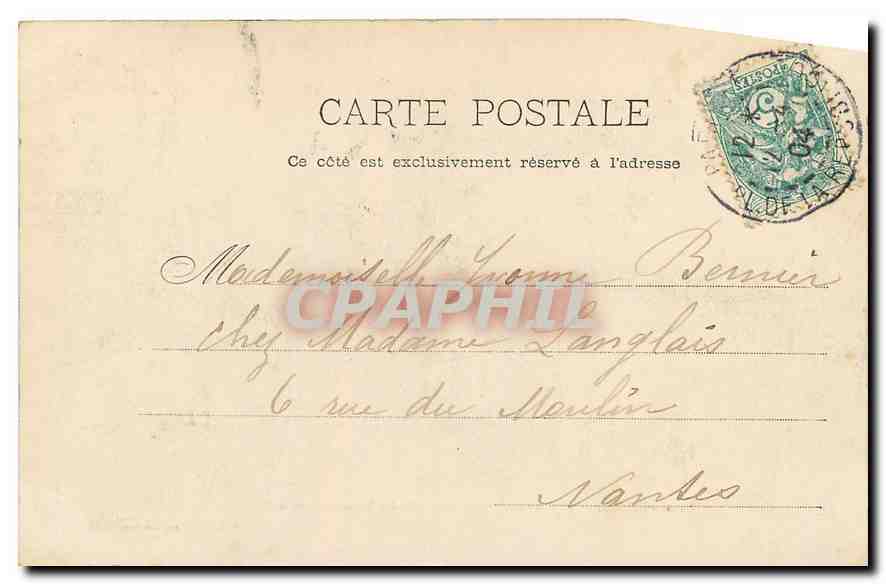 CARTE POSTALE
Ce côté est exclusivement réservé à l'adresse
POSTES
5
12 *
2 - 4
04
PL. DE LA RÉP
Mademoiselle Yvonne Bernier
chez Madame Langlais
6 rue du Moulin
Nantes
CPAPHIL